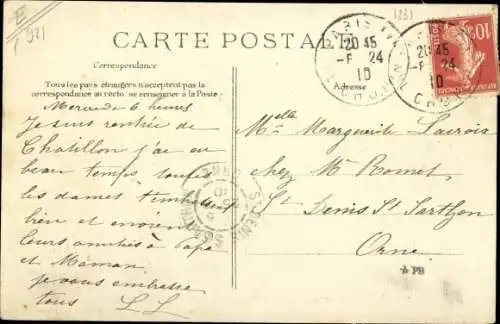 E
921
1231
CARTE POSTALE
Correspondance
Tous les pays étrangers n'acceptent pas la
correspondance au recto se renseigner à la Poste
Adresse
Mercredi 6 heures
Je suis rentrée de
Chatillon j'ai eu
beau temps toutes
les dames t'embrassent
bien et envoient
leurs amitiés à Papa
et Maman.
je vous embrasse
tous L L
Melle Marguerite Lacroix
chez Mr Romet,
St Denis St Sarthon
Orne
PB
PARIS
20 45
-6 24
10
20 45
-6 24
10
POSTES
10
ST DENIS
ORNE